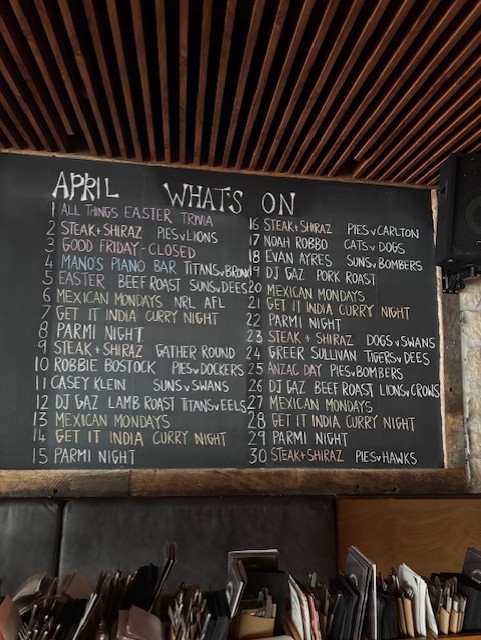 APRIL WHAT'S ON
1 ALL THINGS EASTER TRIVIA
2 STEAK+SHIRAZ PIES v LIONS
3 GOOD FRIDAY - CLOSED
4 MANO'S PIANO BAR TITANS v BRON
5 EASTER BEEF ROAST SUNS v DEES
6 MEXICAN MONDAYS NRL AFL
7 GET IT INDIA CURRY NIGHT
8 PARMI NIGHT
9 STEAK+SHIRAZ GATHER ROUND
10 ROBBIE BOSTOCK PIES v DOCKERS
11 CASEY KLEIN SUNS v SWANS
12 DJ GAZ LAMB ROAST TITANS v EELS
13 MEXICAN MONDAYS
14 GET IT INDIA CURRY NIGHT
15 PARMI NIGHT
16 STEAK+SHIRAZ PIES v CARLTON
17 NOAH ROBBO CATS v DOGS
18 EVAN AYRES SUNS v BOMBERS
19 DJ GAZ PORK ROAST
20 MEXICAN MONDAYS
21 GET IT INDIA CURRY NIGHT
22 PARMI NIGHT
23 STEAK + SHIRAZ DOGS v SWANS
24 GREER SULLIVAN TIGERS v DEES
25 ANZAC DAY PIES v BOMBERS
26 DJ GAZ BEEF ROAST LIONS v CROWS
27 MEXICAN MONDAYS
28 GET IT INDIA CURRY NIGHT
29 PARMI NIGHT
30 STEAK+SHIRAZ PIES v HAWKS